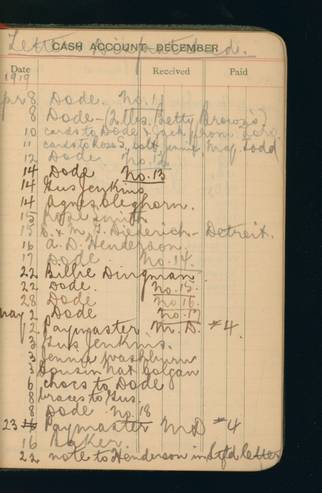 Letters Dispatched.
CASH ACCOUNT—DECEMBER
Date Received Paid
1919
Apr 8 Dode. No. 11
8 Dode - (2 lbs. Betty Brown's)
10 cards to Dode & Jack from
11 cards to Ross, Maj. Todd
12 Dode No. 12
14 Dode No. 13
14 Gus Jenkins
14 Agnes Cleghorn.
15
15 D. & M. J. Diederich - Detroit.
16 A. D. Henderson.
17 Dode No. 14.
22 Billie Dingman
22 Dode. No. 15.
28 Dode No. 16.
May 2 Dode No. 17
2 Paymaster M. D. #4.
3 Gus Jenkins.
3 Jenna Washburn
3 Cousin Nat Colgan
6 chocs to Dode
8 braces to Gus.
8 Dode No. 18
23 Paymaster M D #4
16 Baker.
22 note to Henderson in letter